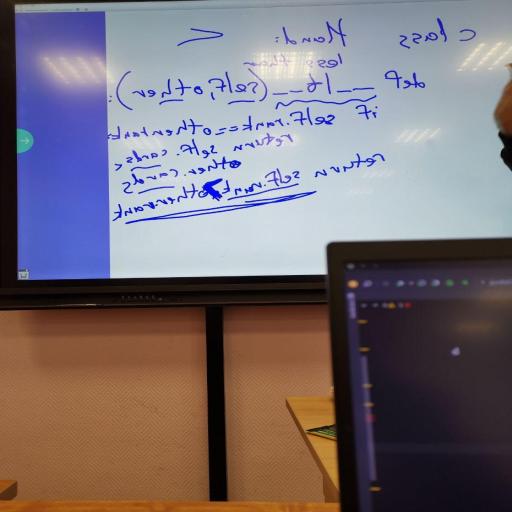 class Hand: <
less than
def __lt__(self, other):
if self.rank == other.rank:
return self.cards <
other.cards
return self.rank < other.rank